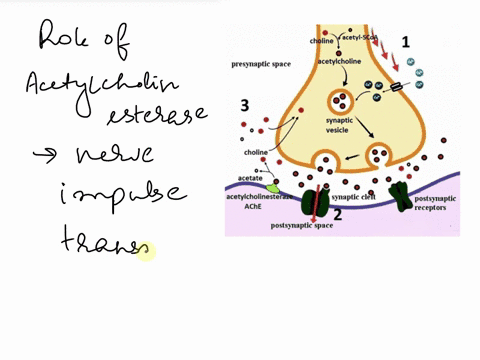 Role of
Acetylcholin
esterase
→ nerve
impulse
trans
choline
acetyl-SCoA
1
acetylcholine
presynaptic space
3
synaptic
vesicle
choline
acetate
acetylcholinesterase
AChE
synaptic cleft
2
postsynaptic
receptors
postsynaptic space